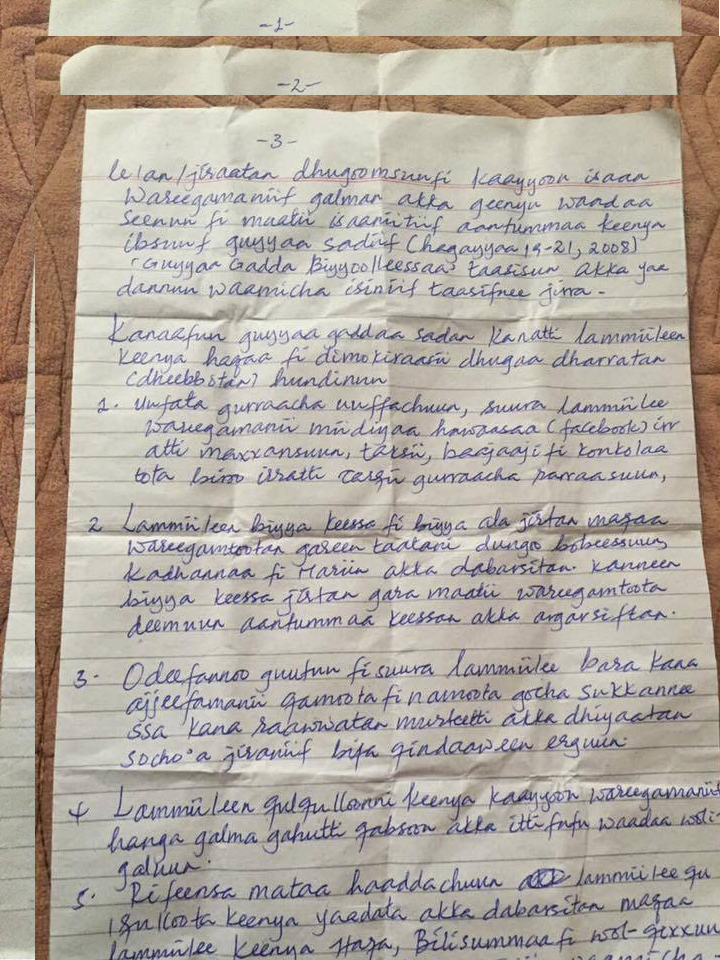 -1-
-2-
-3-
le/an/jiraatan dhugoomsuufi kaayyoon isaan
Wareegamaniif galman akka geenyu waadaa
seenuu fi maatii isaaniitiif aantummaa keenya
ibsuuf guyyaa sadiif (Hagayyaa 19-21, 2008)
"Guyyaa Gadda biyyoolleessaa" taasisun akka yaa
dannuu waamicha isiniif taasifnee jirra.
Kanaafuu guyyaa gaddaa sadan kanatti lammiileen
keenya haqaa fi dimokiraasii dhugaa dharratan
(dheebbotan) hundinuu
1. Uuffata gurraacha uuffachuun, suura lammiilee
wareegamanii miidiyaa hawaasaa (facebook) irr
atti maxxansuun, taksii, baajaaji fi konkolaa
tota biroo irratti tarsii gurraacha rarraasuun,
2 Lammiileen biyya keessa fi biyya ala jirtan maqaa
wareegamtootan gareen taatani dungoo bobeessuun,
Kadhannaa fi Hariin akka dabarsitan. Kanneen
biyya keessa jirtan gara maatii wareegamtoota
deemuun aantummaa keessan akka argarsiftan.
3- Odeefannoo guutuu fi suura lammiilee bara kana
ajjeefamanii qamoota fi namoota gocha sukkannee
ssa kana raawwatan murteetti akka dhiyaatan
socho'a jiraniif bifa qindaaween erguun.
4 Lammiileen qulqulloonni keenya kaayyoon wareegamaniif
hanga galma gahutti qabsoon akka itti fufu waadaa wol-
galuun.
5. Rifeensa mataa haaddachuun lammiilee qu
lqulloota keenya yaadata akka dabarsitan maqaa
lammiilee keenya Haqa, Bilisummaa fi wol-qixxuu